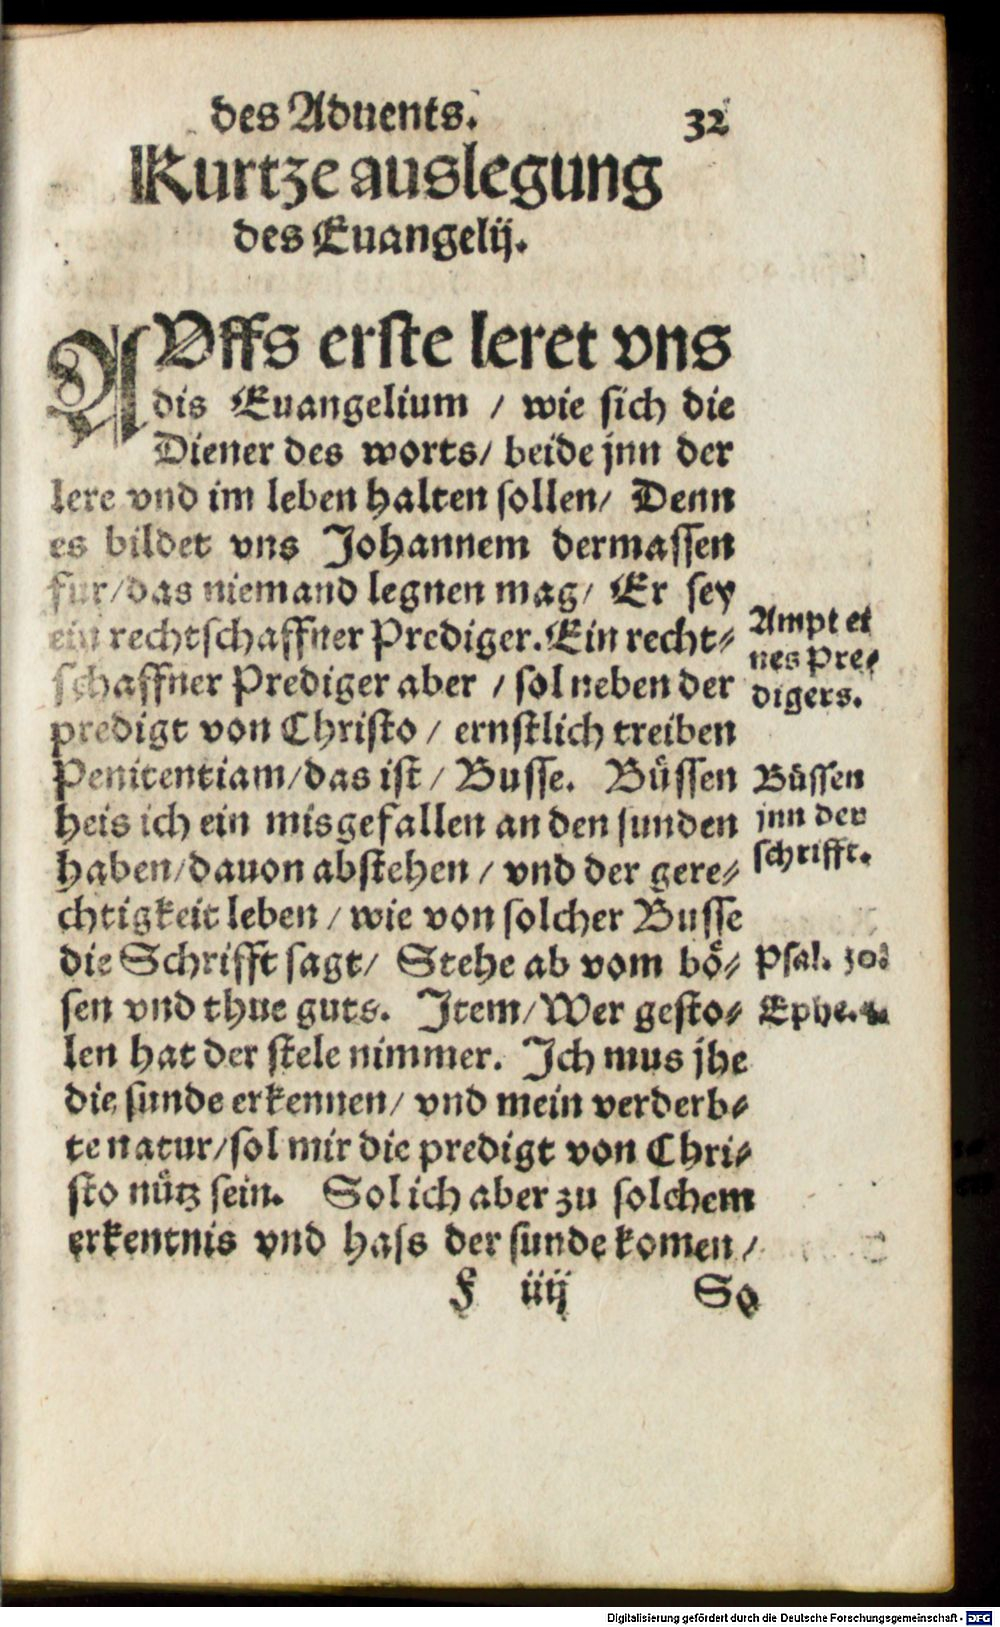 des Aduents. 32
Kurtze auslegung
des Euangelij.
AVffs erste leret vns
dis Euangelium / wie sich die
Diener des worts / beide jnn der
lere vnd im leben halten sollen / Denn
es bildet vns Johannem dermassen
fur / das niemand legnen mag / Er sey
ein rechtschaffner Prediger. Ein recht-
schaffner Prediger aber / sol neben der
predigt von Christo / ernstlich treiben
Penitentiam / das ist / Busse. Büssen
heis ich ein misgefallen an den sunden
haben / dauon abstehen / vnd der gere-
chtigkeit leben / wie von solcher Busse
die Schrifft sagt / Stehe ab vom bö-
sen vnd thue guts. Item / Wer gesto-
len hat der stele nimmer. Ich mus jhe
die sunde erkennen / vnd mein verderb-
te natur / sol mir die predigt von Chri-
sto nütz sein. Sol ich aber zu solchem
erkentnis vnd hass der sunde komen /
F iiij So
Ampt ei
nes Pre-
digers.
Büssen
jnn der
schrifft.
Psal.
Ephe. 4
Digitalisierung gefördert durch die Deutsche Forschungsgemeinschaft - DFG